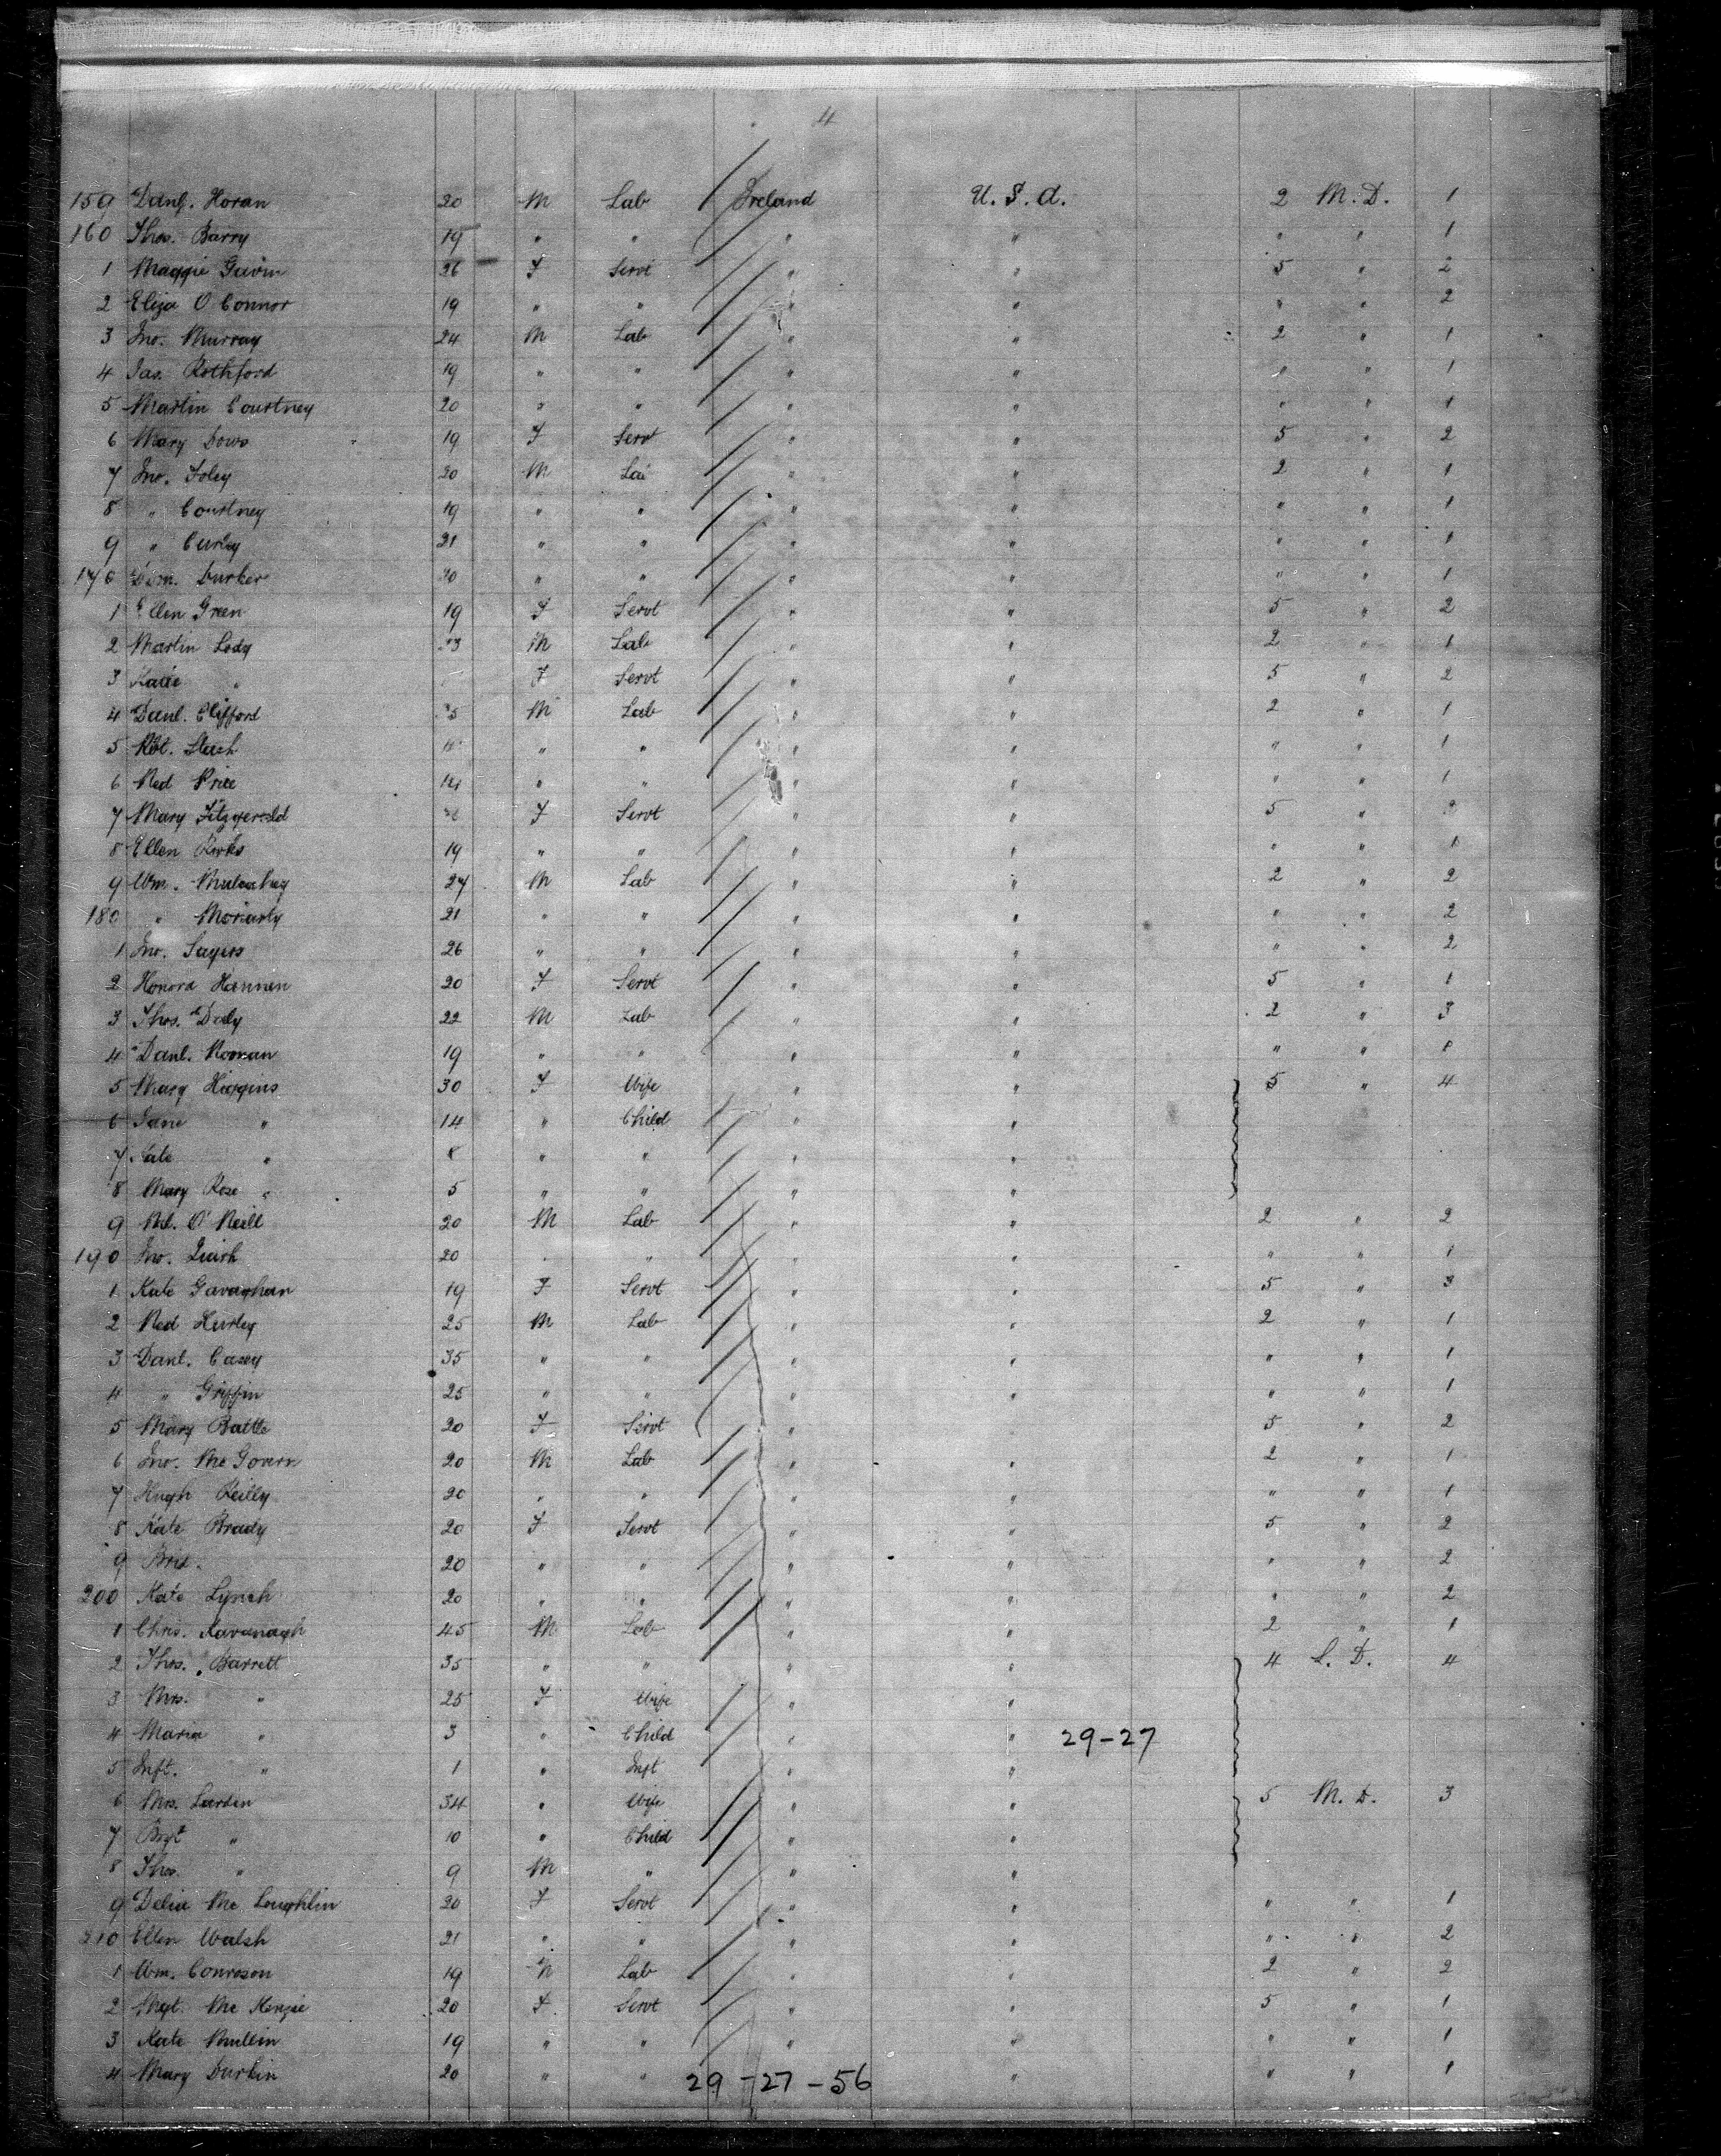 4
159 Danl. Horan 20 M Lab Ireland U. S. A. 2 M. D. 1
160 Thos. Barry 19 " " " " " " 1
1 Maggie Gavin 26 F Servt " " 5 " 2
2 Eliza O'Connor 19 " " " " " " 2
3 Jno. Murray 24 M Lab " " 2 " 1
4 Jas. Rothford 19 " " " " " " 1
5 Martin Courtney 20 " " " " " " 1
6 Mary Dowd 19 F Servt " " 5 " 2
7 Jno. Foley 20 M Lab " " 2 " 1
8 " Courtney 19 " " " " " " 1
9 " Curley 21 " " " " " " 1
170 Dom. Durker 20 " " " " " " 1
1 Ellen Green 19 F Servt " " 5 " 2
2 Martin Ledy M Lab " " 2 " 1
3 Katie " F Servt " " 5 " 2
4 Danl. Clifford M Lab " " 2 " 1
5 Rbt. " " " " " " 1
6 Ned Price " " " " " " 1
7 Mary Fitzgerald F Servt " " 5 "
8 Ellen 19 " " " " " " 1
9 Wm. Mulcahey 27 M Lab " " 2 " 2
180 " Moriarty 21 " " " " " " 2
1 Jno. Sayers 26 " " " " " " 2
2 Honora Hannen 20 F Servt " " 5 " 1
3 Thos. Daly 22 M Lab " " 2 " 3
4 Danl. Noonan 19 " " " " " "
5 Mary Higgins 30 F Wife " " 5 " 4
6 Jane " 14 " Child " "
7 Kate " 8 " " " "
8 Mary Rose " 5 " " " "
9 Ml. O'Neill 20 M Lab " " 2 " 2
190 Jno. Quish 20 " " " " " " 1
1 Kate Gavaghan 19 F Servt " " 5 " 3
2 Ned Hurley 25 M Lab " " 2 " 1
3 Danl. Casey 35 " " " " " " 1
4 " Griffin 25 " " " " " " 1
5 Mary Battle 20 F Servt " " 5 " 2
6 Jno. Mc Govern 20 M Lab " " 2 " 1
7 Hugh Reilly 20 " " " " " " 1
8 Kate Brady 20 F Servt " " 5 " 2
9 Brid. 20 " " " " " " 2
200 Kate Lynch 20 " " " " " " 2
1 Chris. Kavanagh 45 M Lab " " 2 " 1
2 Thos. Barrett 35 " " " " 4 L. D. 4
3 Mrs. " 25 F Wife " "
4 Maria " 3 " Child " " 29-27
5 Inft. " 1 " Inft " "
6 Mrs. Larden 34 " Wife " " 5 M. D. 3
7 Brgt " 10 " Child " "
8 Thos. " 9 M " " "
9 Delia Mc Loughlin 20 F Servt " " " " 1
210 Ellen Walsh 21 " " " " " " 2
1 Wm. Conroson 19 M Lab " " 2 " 2
2 Mgt. Mc Kenzie 20 F Servt " " 5 " 1
3 Kate Mullin 19 " " " " " " 1
4 Mary Durkin 20 " " " " " 1
29-27-56